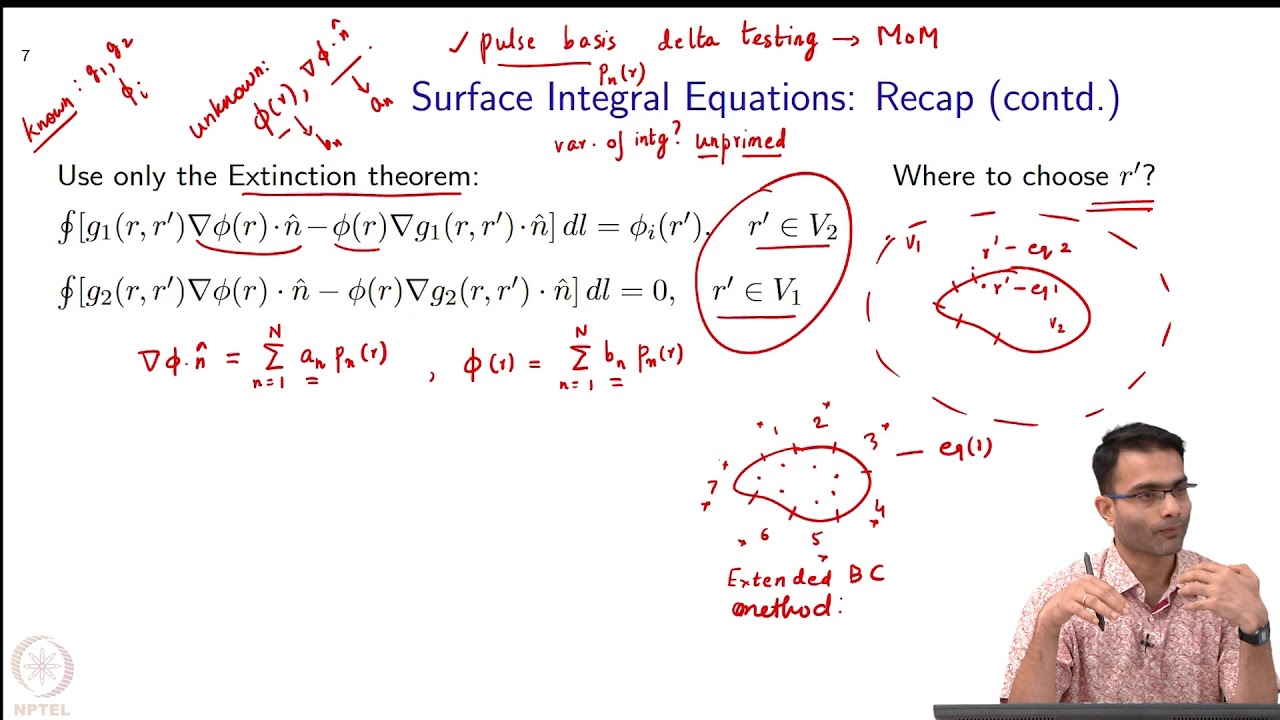 7
known : g₁, g₂
ϕi
unknown:
ϕ(r), ∇ϕ·n̂
bn
an
✓ pulse basis delta testing → MoM
Pn(r)
Surface Integral Equations: Recap (contd.)
var. of intg? unprimed
Use only the Extinction theorem:
Where to choose r′?
∮[g₁(r, r′)∇ϕ(r)·n̂−ϕ(r)∇g₁(r, r′)·n̂] dl = ϕi(r′), r′ ∈ V₂
∮[g₂(r, r′)∇ϕ(r) · n̂ − ϕ(r)∇g₂(r, r′) · n̂] dl = 0, r′ ∈ V₁
V₁
r′ - eq 2
r′ - eq 1
V₂
∇ϕ·n̂ = Σ n=1 N an Pn(r) , ϕ(r) = Σ n=1 N bn Pn(r)
1 2 3 4 5 6 7
— eq(1)
Extended BC
method :
NPTEL